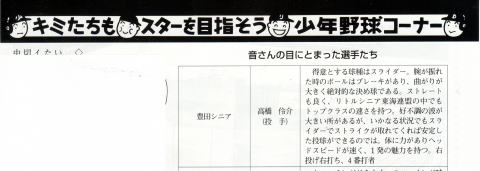 キミたちもスターを目指そう 少年野球コーナー
音さんの目にとまった選手たち
豊田シニア
高橋 伶介
(投 手)
得意とする球種はスライダー。腕が振れ
た時のボールはブレーキがあり、曲がりが
大きく絶対的な決め球である。ストレート
も良く、リトルシニア東海連盟の中でも
トップクラスの速さを持つ。好不調の波が
大きい所があるが、いかなる状況でもスラ
イダーでストライクが取れてくれば安定し
た投球ができるのでは。体に力がありヘッ
ドスピードが速く、1発の魅力を持つ。右
投げ右打ち、4番打者